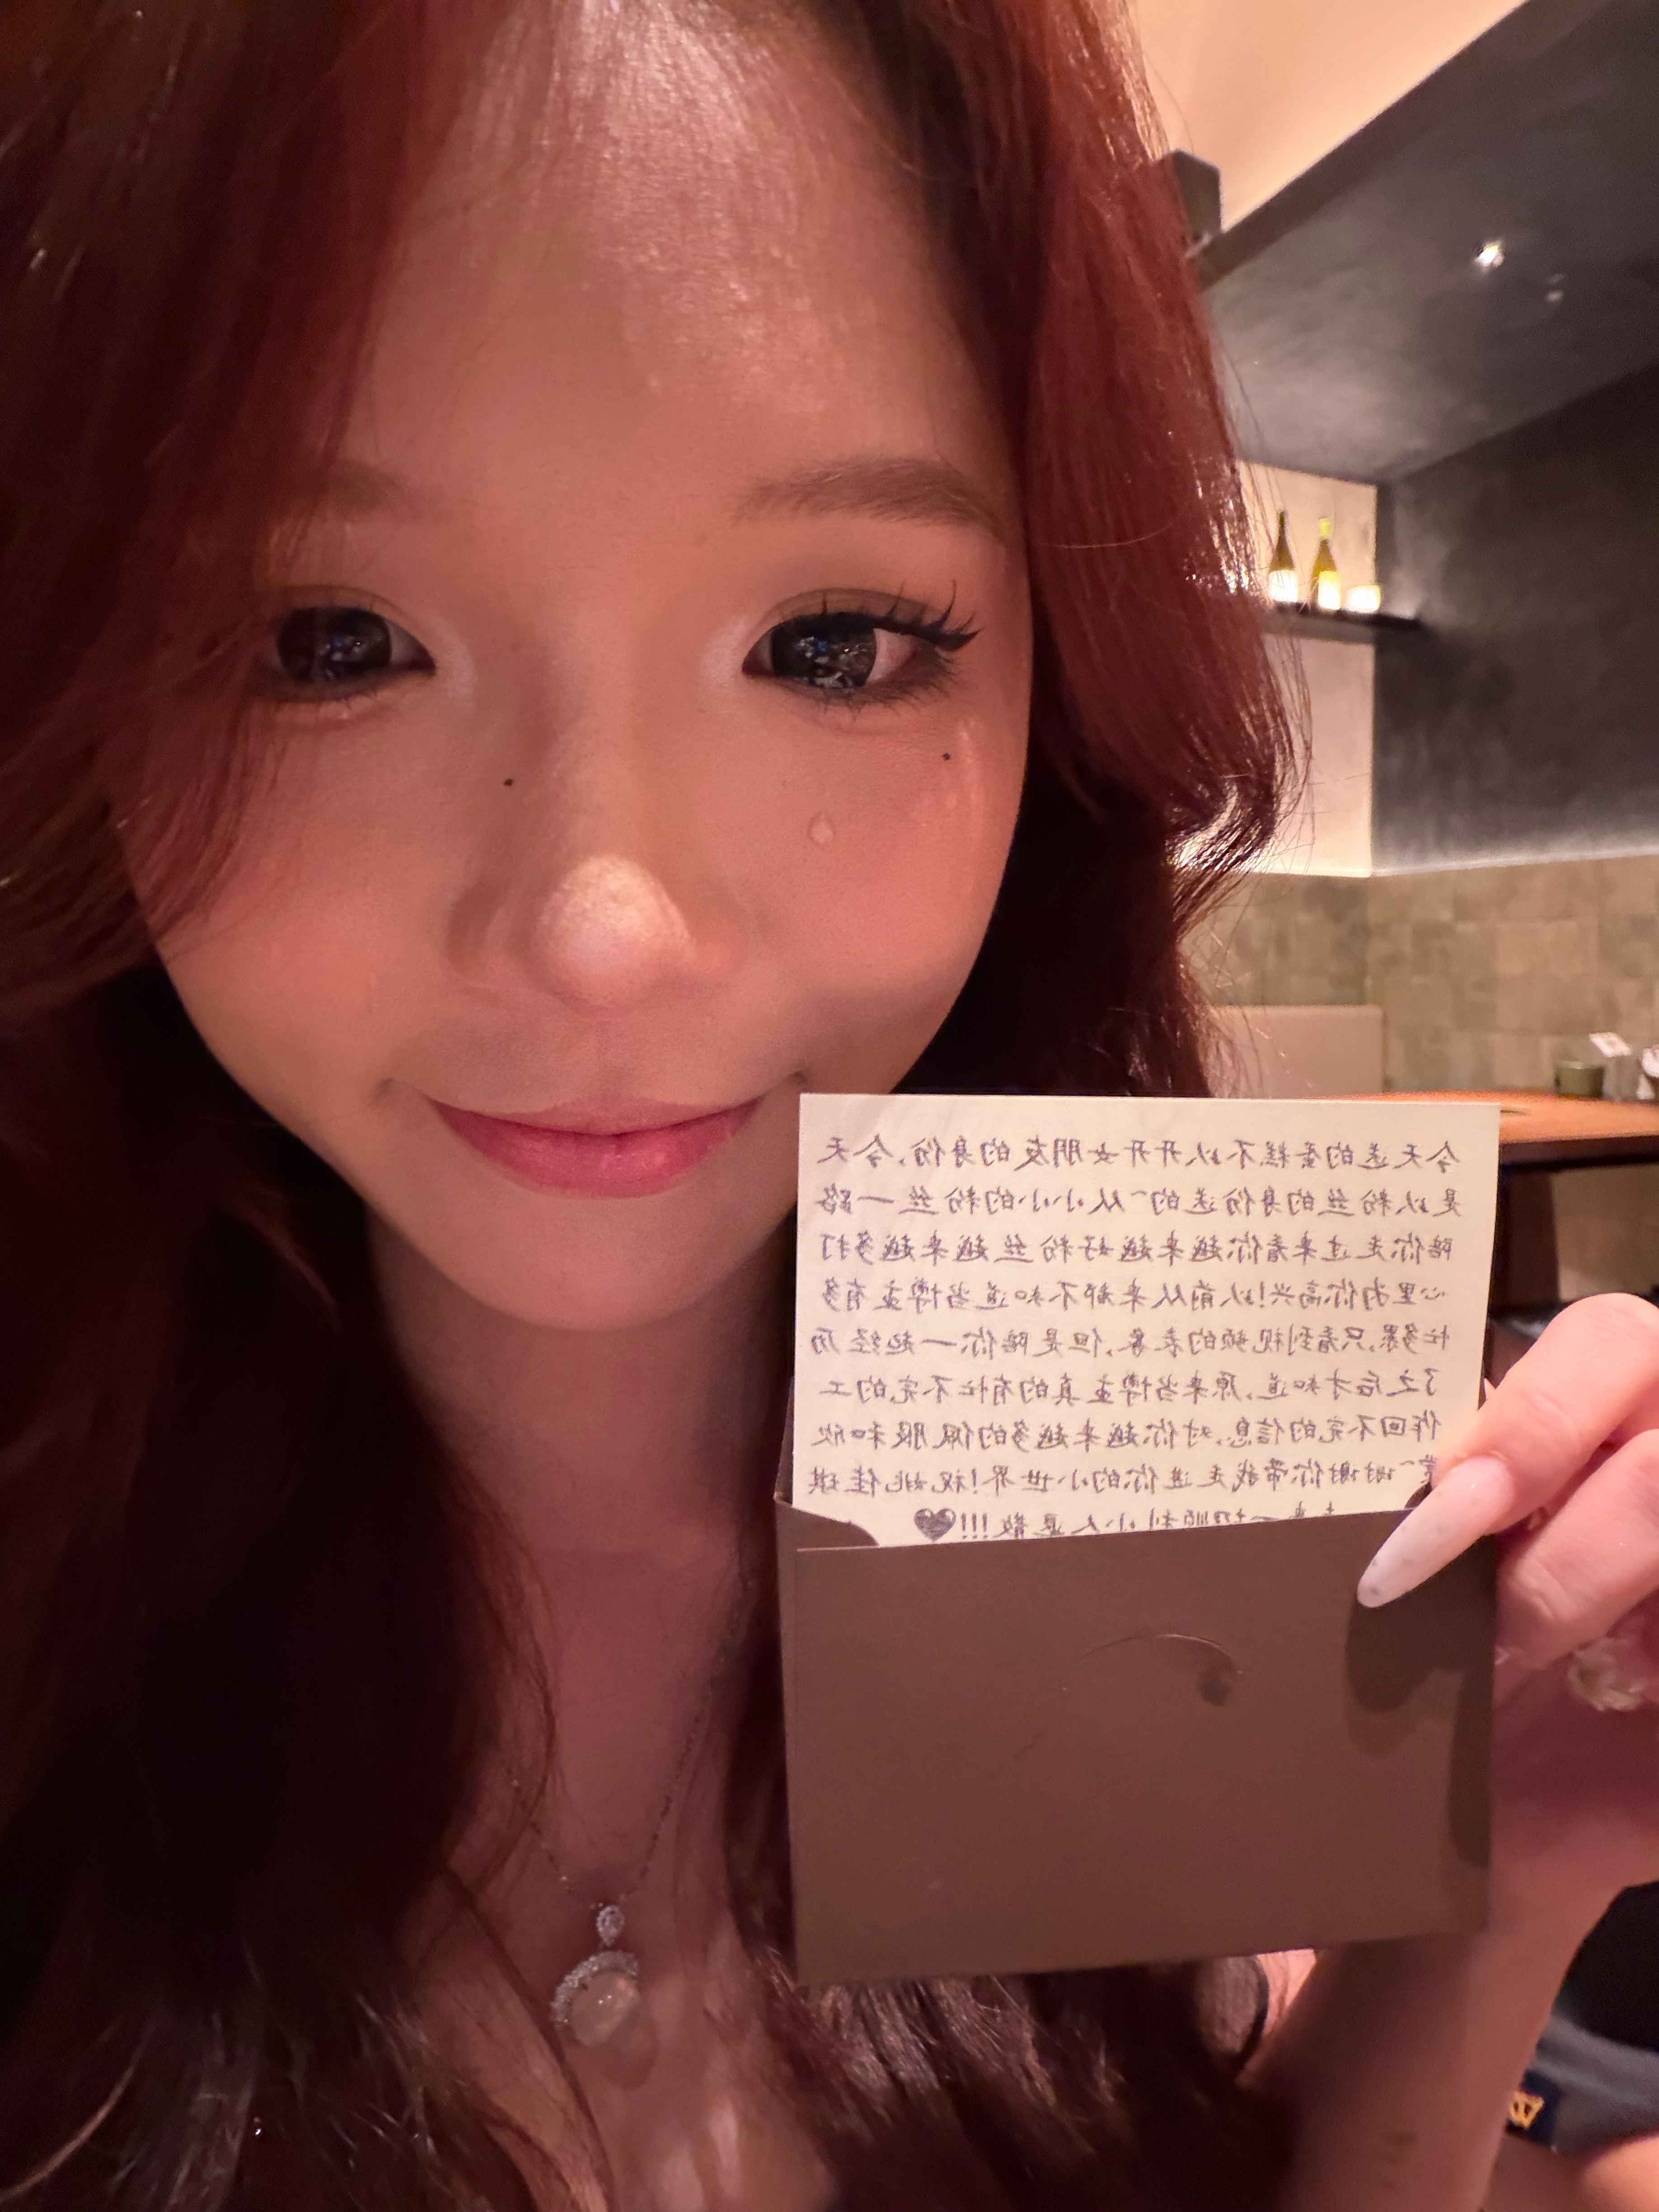 今天送的蛋糕不以开开女朋友的身份,今天
是以粉丝的身份送的~从小小的粉丝一路
陪你走过来看你越来越好粉丝越来越多打
心里为你高兴!以前从来都不知道当博主有多
忙多累,只看到视频的表象,但是陪你一起经历
了之后才知道,原来当博主真的有忙不完的工
作回不完的信息,对你越来越多的佩服和欣
赏~谢谢你带我走进你的小世界!祝姚佳琪
一切顺利小人退散!!!